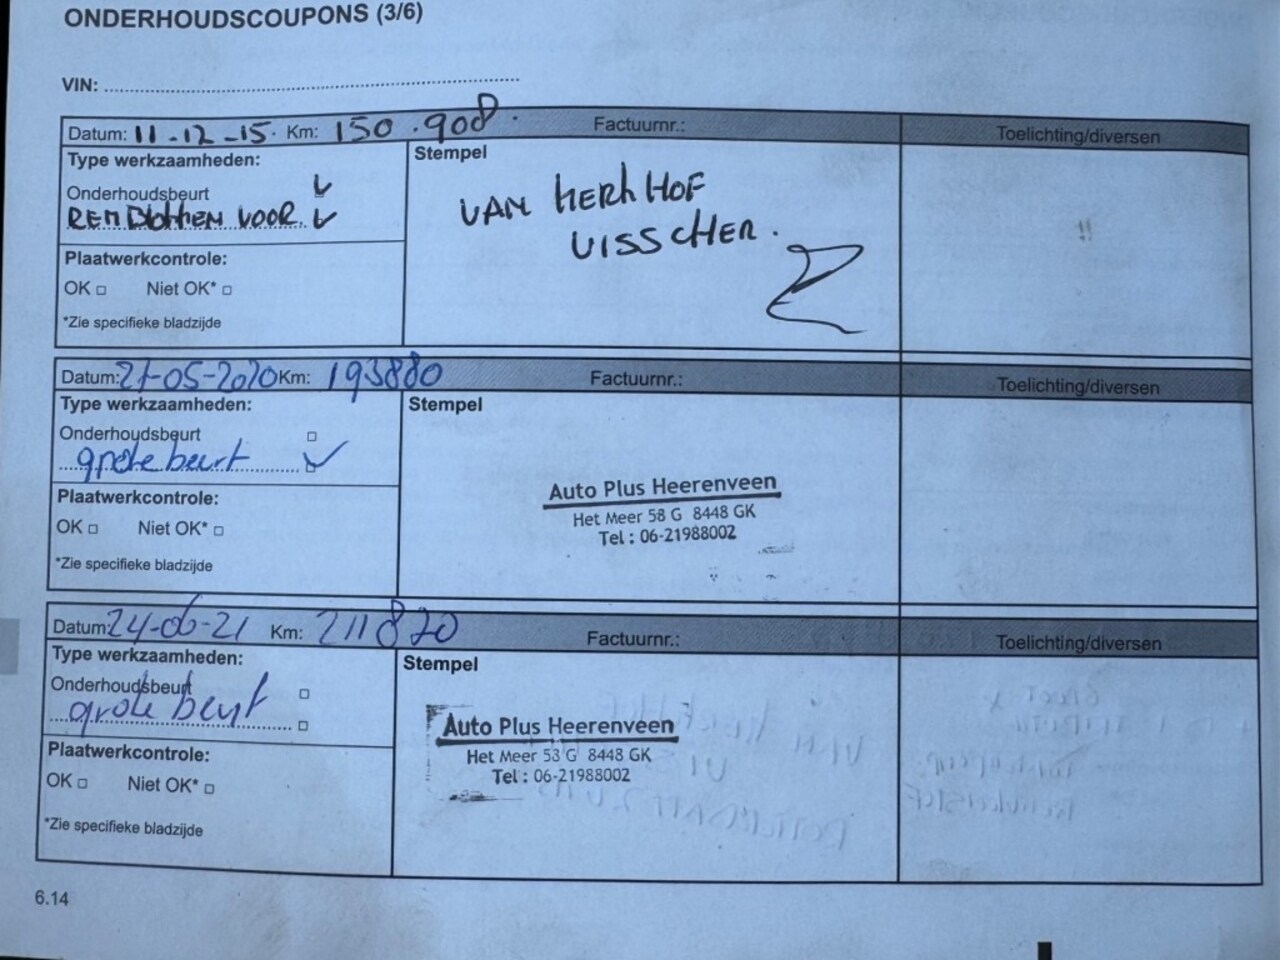 ONDERHOUDSCOUPONS (3/6)
VIN:
Datum: 11-12-15. Km: 150.908. Factuurnr.: Toelichting/diversen
Type werkzaamheden: Stempel
Onderhoudsbeurt
REMBLOKKEN VOOR.
VAN KERKHOF
VISSCHER.
Plaatwerkcontrole:
OK Niet OK*
*Zie specifieke bladzijde
Datum: 27-05-2020 Km: 193880 Factuurnr.: Toelichting/diversen
Type werkzaamheden: Stempel
Onderhoudsbeurt
grote beurt
Auto Plus Heerenveen
Het Meer 58 G 8448 GK
Tel : 06-21988002
Plaatwerkcontrole:
OK Niet OK*
*Zie specifieke bladzijde
Datum: 24-06-21 Km: 211820 Factuurnr.: Toelichting/diversen
Type werkzaamheden: Stempel
Onderhoudsbeurt
grote beurt
Auto Plus Heerenveen
Het Meer 58 G 8448 GK
Tel : 06-21988002
Plaatwerkcontrole:
OK Niet OK*
*Zie specifieke bladzijde
6.14